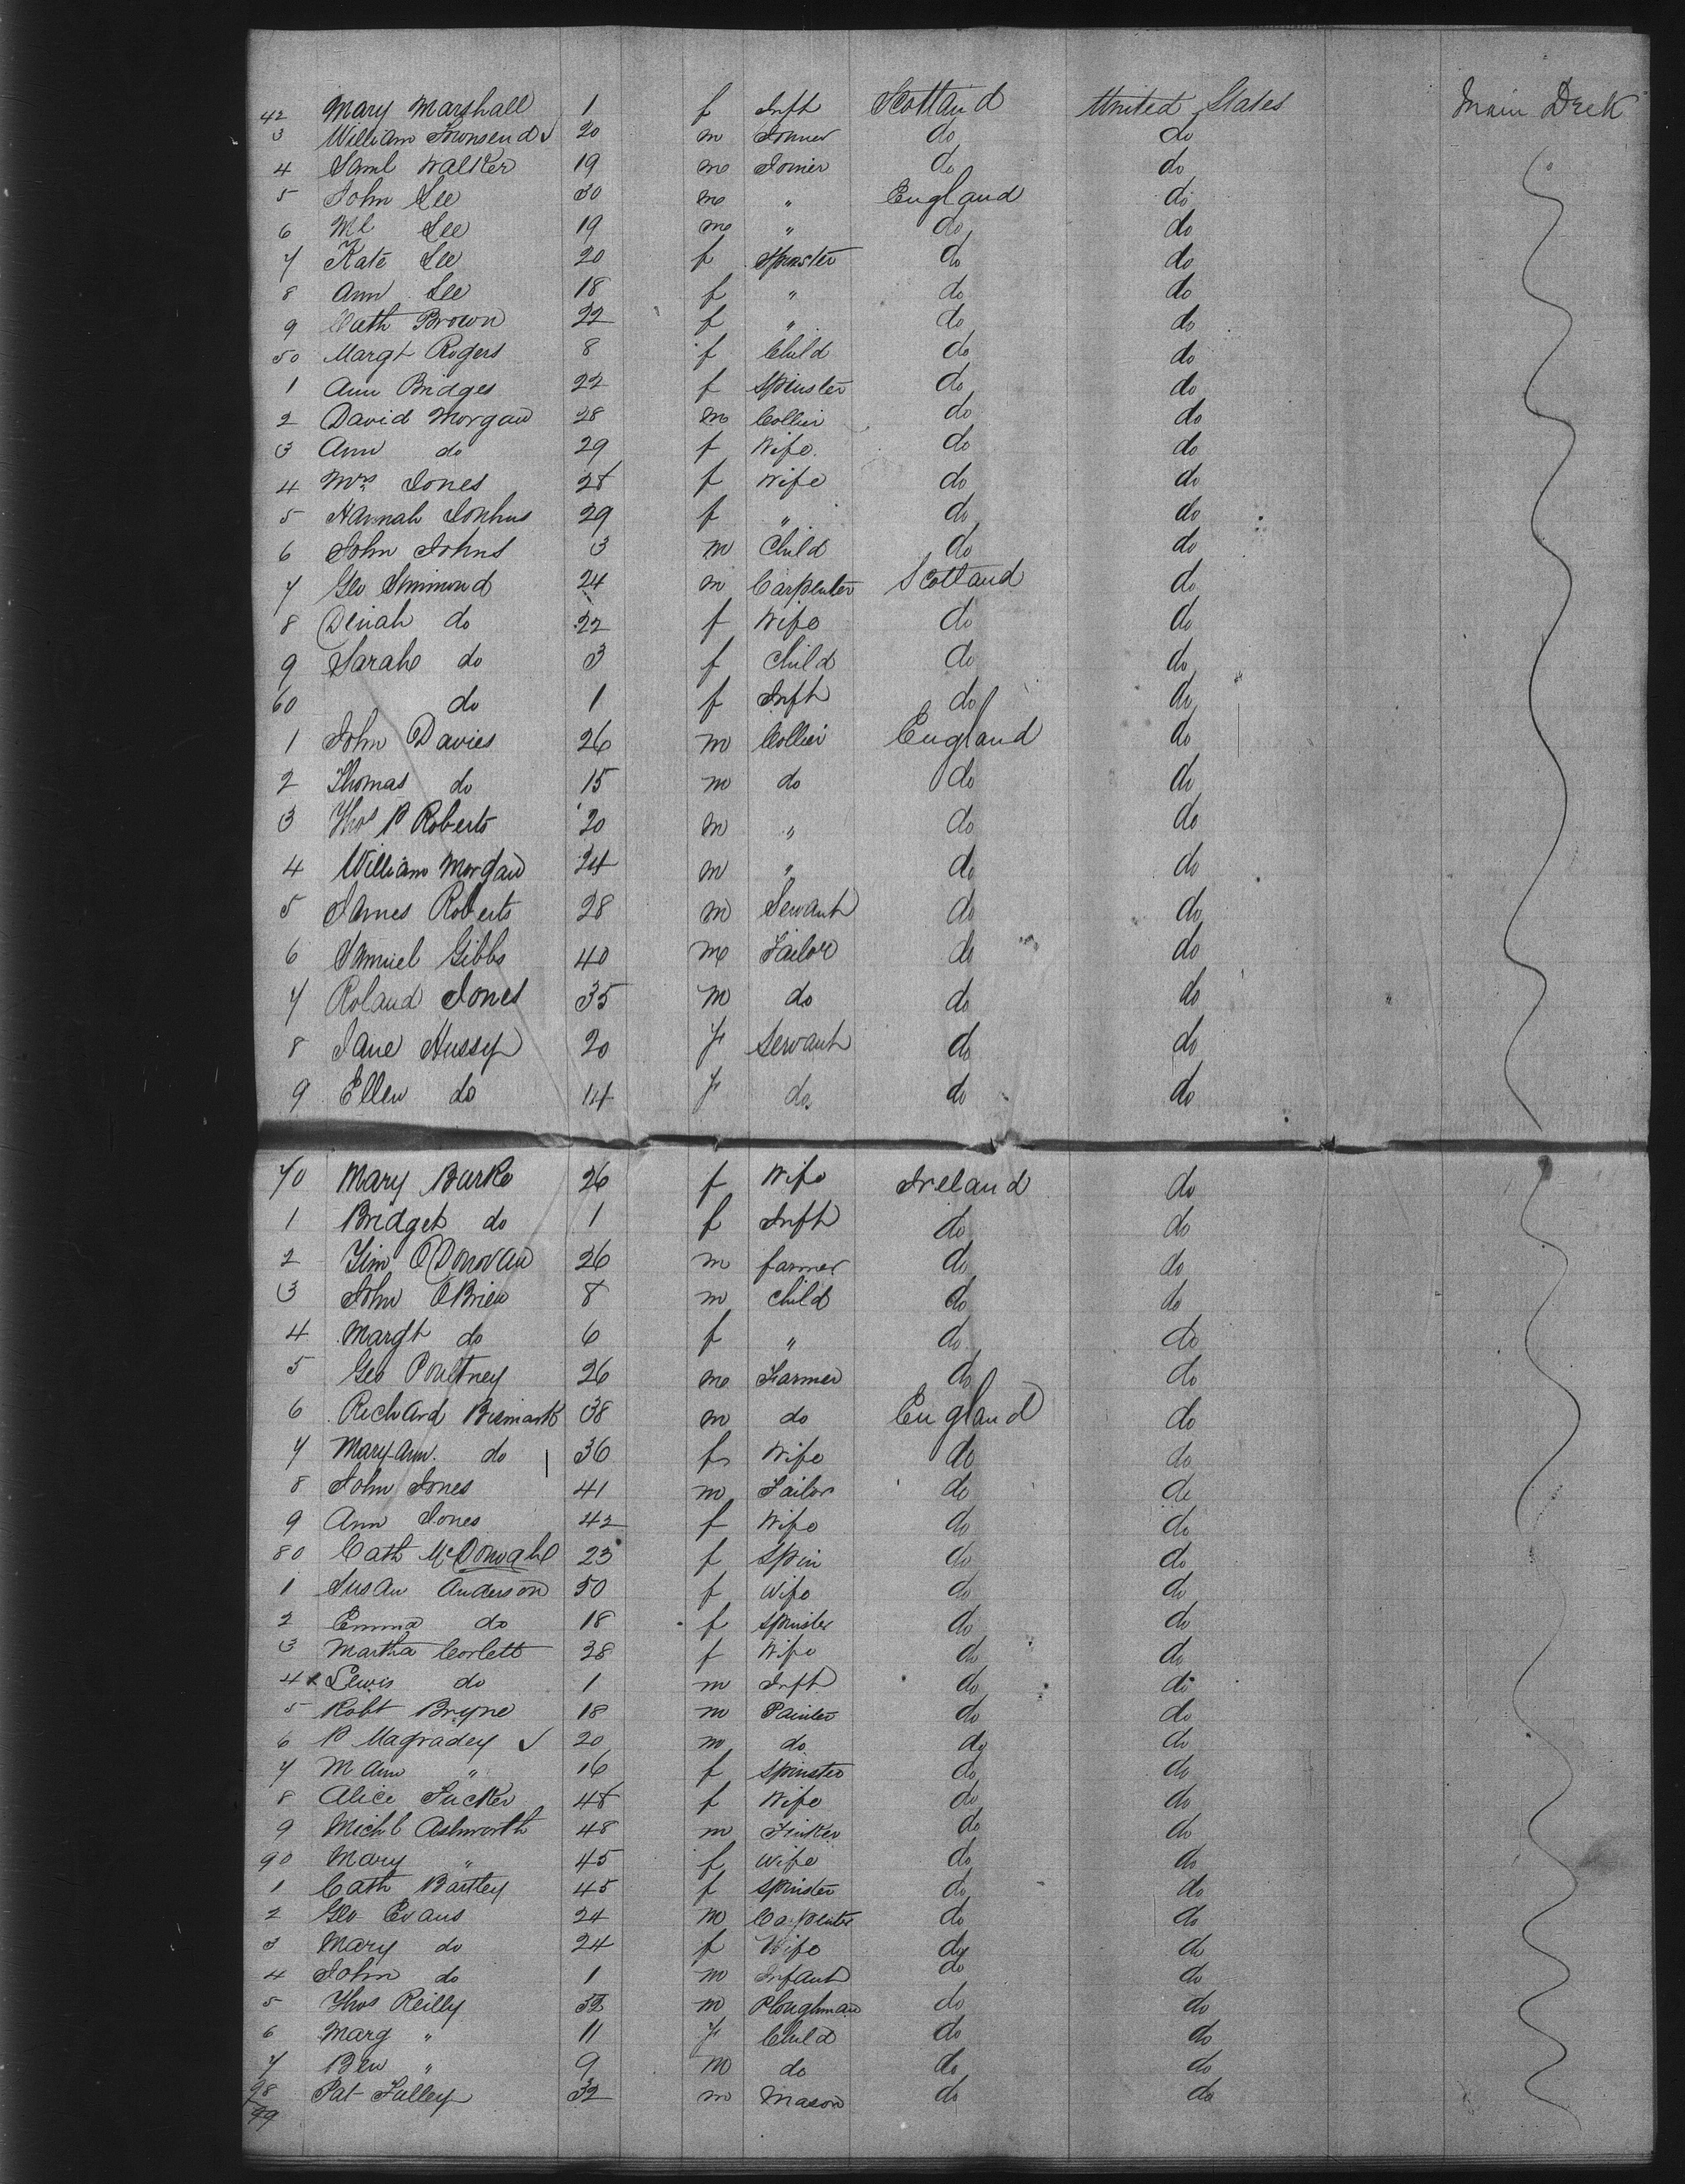 42 Mary Marshall 1 f Inft Scotland United States Main Deck
3 William Townsend ✓ 20 m Joiner do do
4 Saml Walker 19 m Joiner do do
5 John Lee 30 m " England do
6 Ml Lee 19 m " do do
7 Kate Lee 20 f Spinster do do
8 Ann Lee 18 f " do do
9 Cath Brown 22 f " do do
50 Margt Rogers 8 f Child do do
1 Ann Bridges 22 f Spinster do do
2 David Morgan 28 m Collier do do
3 Ann do 29 f Wife do do
4 Mrs Jones 28 f Wife do do
5 Hannah 29 f " do do
6 John Johns 3 m Child do do
7 Geo Simmond 24 m Carpenter Scotland do
8 Dinah do 22 f Wife do do
9 Sarah do 3 f Child do do
60 do 1 f Inft do do
1 John Davies 26 m Collier England do
2 Thomas do 15 m do do do
3 Thos P Roberts 20 m " do do
4 William Morgan 24 m " do do
5 James Roberts 28 m Servant do do
6 Samuel Gibbs 40 m Tailor do do
7 Roland Jones 35 m do do do
8 Jane Hussey 20 f Servant do do
9 Ellen do 14 f do do do
70 Mary Burke 26 f Wife Ireland do
1 Bridget do 1 f Inft do do
2 Tim O'Donovan 26 m farmer do do
3 John OBrien 8 m Child do do
4 Margt do 6 f " do do
5 Geo Poultney 26 m Farmer do do
6 Richard Bismark 38 m do England do
7 Mary-Ann do 36 f Wife do do
8 John Jones 41 m Tailor do do
9 Ann Jones 42 f Wife do do
80 Cath 23 f Spin do do
1 Susan Anderson 50 f Wife do do
2 Emma do 18 f Spinster do do
3 Martha Corlett 28 f Wife do do
4 x Lewis do 1 m Inft do do
5 Robt Bryne 18 m Painter do do
6 P Magradey ✓ 20 m do do do
7 M Ann " 16 f Spinster do do
8 Alice Tucker 48 f Wife do do
9 Michl Ashworth 48 m Tinker do do
90 Mary " 45 f Wife do do
1 Cath Bartley 45 f Spinster do do
2 Geo Evans 24 m Carpenter do do
3 Mary do 24 f Wife do do
4 John do 1 m Infant do do
5 Thos Reilly 32 m Ploughman do do
6 Marg " 11 f Child do do
7 Ben " 9 m do do do
98 Pat Talley 32 m Mason do do
99